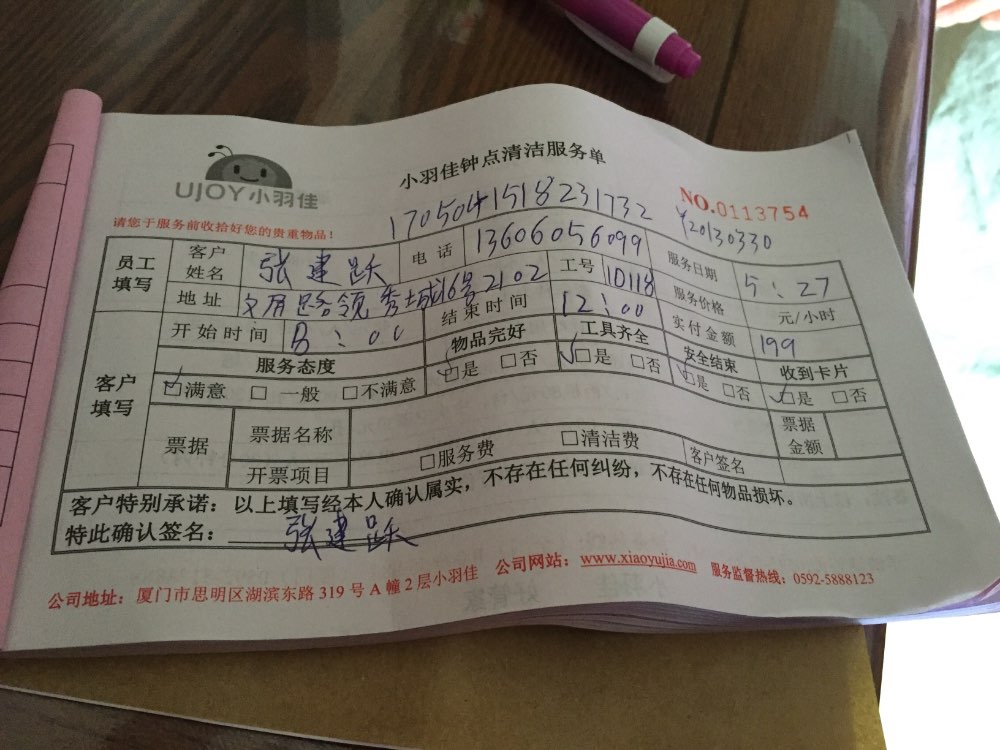 UJOY小羽佳
小羽佳钟点清洁服务单
请您于服务前收拾好您的贵重物品!
1705041518231732
NO.0113754
Y20130330
员工填写 客户姓名 张建跃 电话 13606056099 服务日期 5:27
地址 文屏路领秀城16号2102 工号 10118 服务价格 元/小时
开始时间 8:00 结束时间 12:00 实付金额 199
客户填写 服务态度 物品完好 工具齐全 安全结束 收到卡片
☑满意 □一般 □不满意 ☑是 □否 ☑是 □否 ☑是 □否 ☑是 □否
票据 票据名称 票据金额
开票项目 □服务费 □清洁费 客户签名
客户特别承诺:以上填写经本人确认属实,不存在任何纠纷,不存在任何物品损坏。
特此确认签名: 张建跃
公司地址:厦门市思明区湖滨东路319号A幢2层小羽佳 公司网站:www.xiaoyujia.com 服务监督热线:0592-5888123